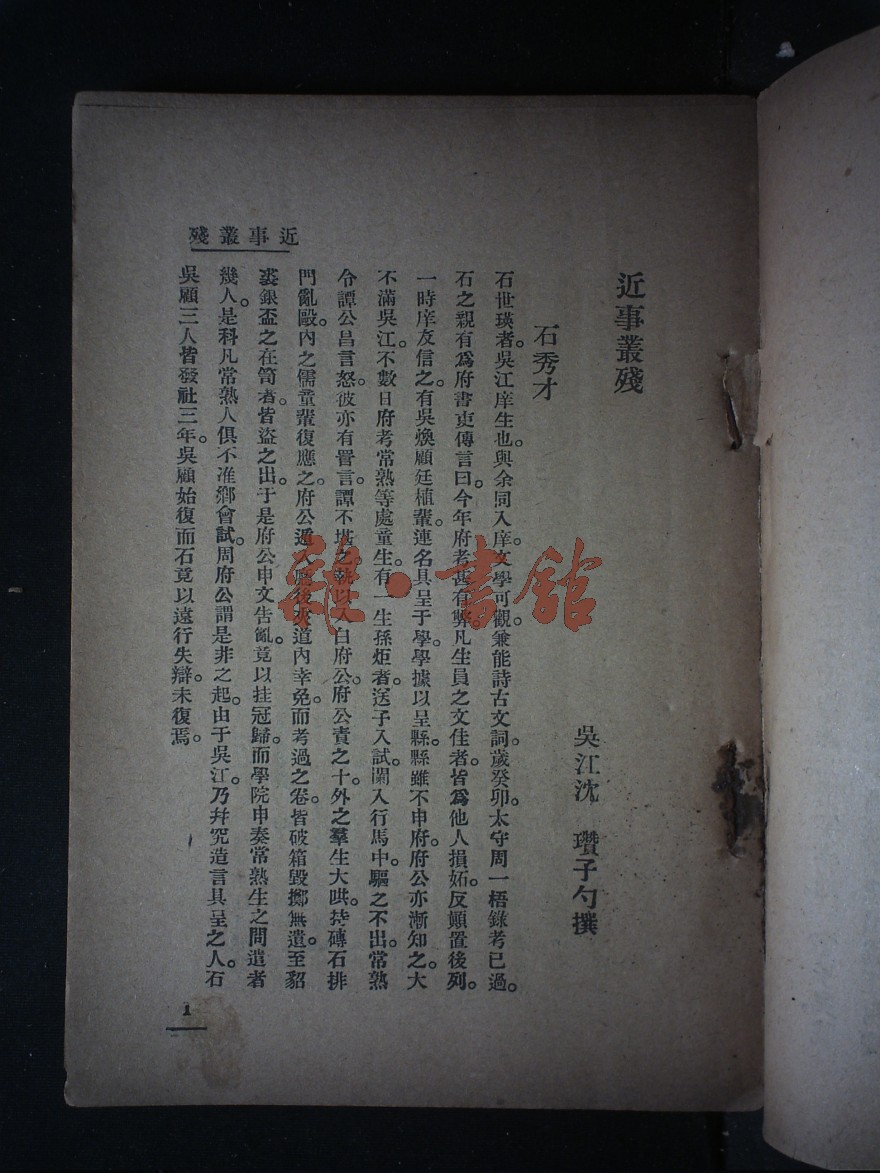 近事叢殘
吳江沈　瓚子勺撰
石秀才
石世瑛者。吳江庠生也。與余同入庠。文學可觀。兼能詩古文詞。歲癸卯。太守周一梧錄考已過。
石之親有爲府書吏傳言曰。今年府考甚有弊。凡生員之文佳者。皆爲他人損妬。反顚置後列。
一時庠友信之。有吳煥顧廷植輩。連名具呈于學。學據以呈縣。縣雖不申府。府公亦漸知之。大
不滿吳江。不數日府考常熟等處童生。有一生孫炬者。送子入試。闌入行馬中。驅之不出。常熟
令譚公昌言怒。彼亦有詈言。譚不堪之。執以入白府公。府公責之十。外之羣生大哄。持磚石排
門亂毆。內之儒童輩復應之。府公遁入廳後夾道內幸免。而考過之卷。皆破箱毀擲無遺。至貂
裘銀盃之在笥者。皆盜之出。于是府公申文告亂。竟以挂冠歸。而學院申奏常熟生之問遣者
幾人。是科凡常熟人俱不准鄉會試。周府公謂是非之起。由于吳江。乃幷究造言具呈之人。石
吳顧三人皆發社三年。吳顧始復而石竟以遠行失辯。未復焉。
近事叢殘
1
雜·書館